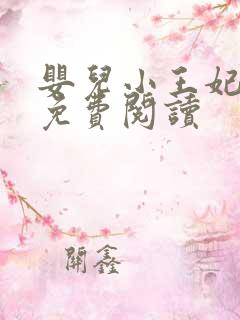 嬰兒小王妃
免費閱讀
關鑫